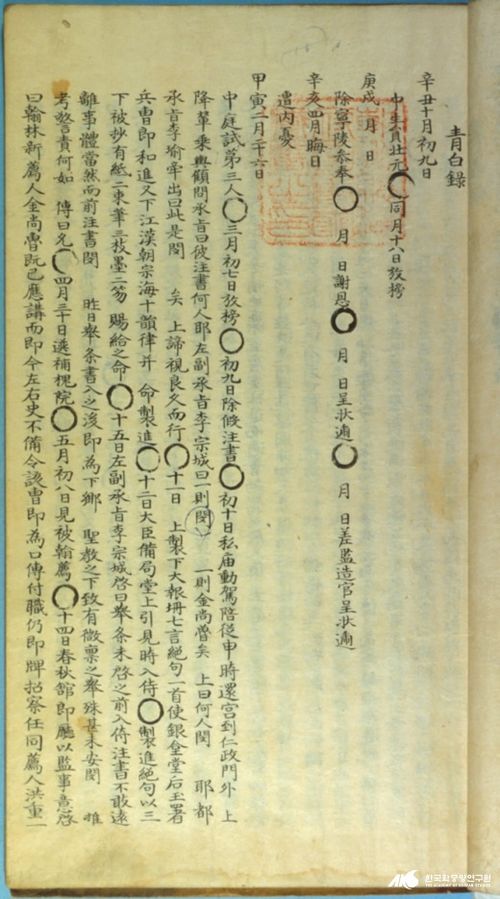 青白錄
辛丑十月初九日
中生員壯元○同月十八日放榜
庚戌 月 日
除寧陵參奉○ 月 日謝恩○ 月 日呈狀遞○ 月 日差監造官呈狀遞
辛亥四月晦日
遭内憂
甲寅二月二十六日
中庭試第三人○三月初七日放榜○初九日除假注書○初十日私庙動駕陪從申時還宮到仁政門外 上
降輦乘輿顧問承旨曰彼注書何人耶左副承旨李宗城曰一則閔 一則金尚魯矣 上曰何人閔 耶都
承旨李瑜率出曰此是閔 矣 上諦視良久而行○十一日 上製下大報壇七言絶句一首使銀臺堂后玉署
兵曺即和進又下江漢朝宗海十韻律并 命製進○十二日大臣備局堂上引見時入侍○製進絶句以三
下被抄有紙二束筆三枝墨二笏 賜給之命○十五日左副承旨李宗城啓曰舉条未啓之前入侍注書不敢遠
離事體當然而前注書閔 昨日舉条書入之後即為下鄉 聖教之下致有微稟之舉殊甚未安閔 推
考警責何如 傳曰允○四月三十日選補槐院○五月初八日見被翰薦○十四日春秋館即廳以監事意啓
曰翰林新薦人金尚魯既已應講而即今左右史不備令該曺即為口傳付職仍即牌招察任同薦人洪重一
한국학중앙연구원
THE ACADEMY OF KOREAN STUDIES